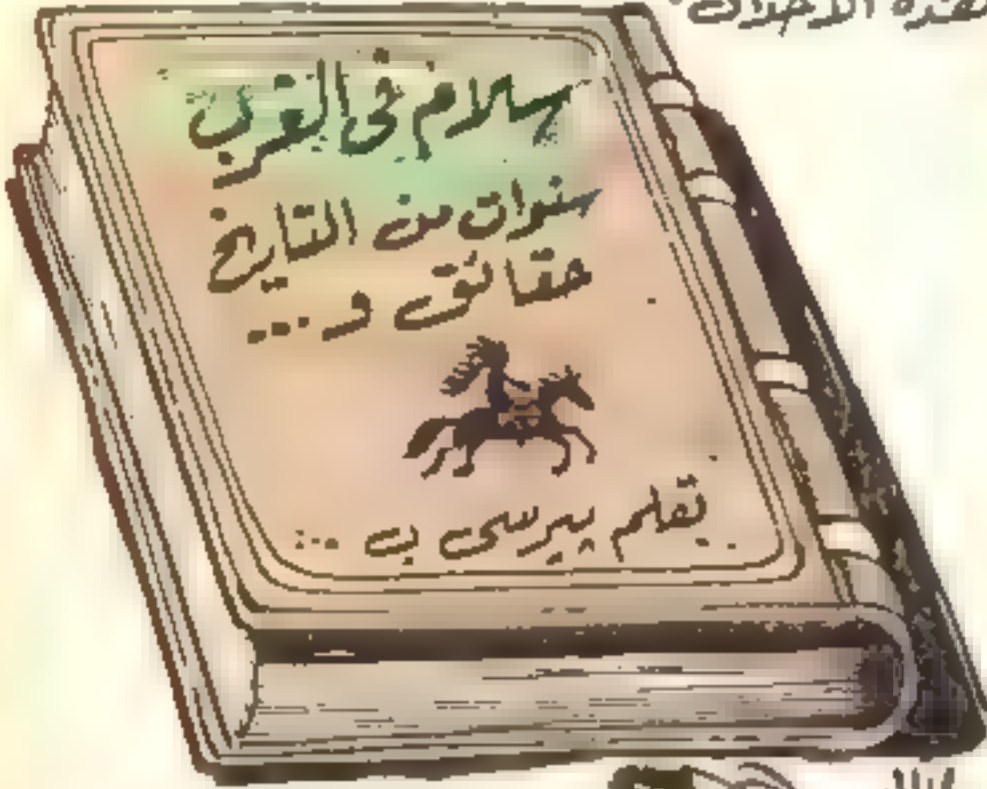 الأخلاق
سلام في الغرب
سنوات من التاريخ
حقائق و ...
بقلم بيرسى ب ...